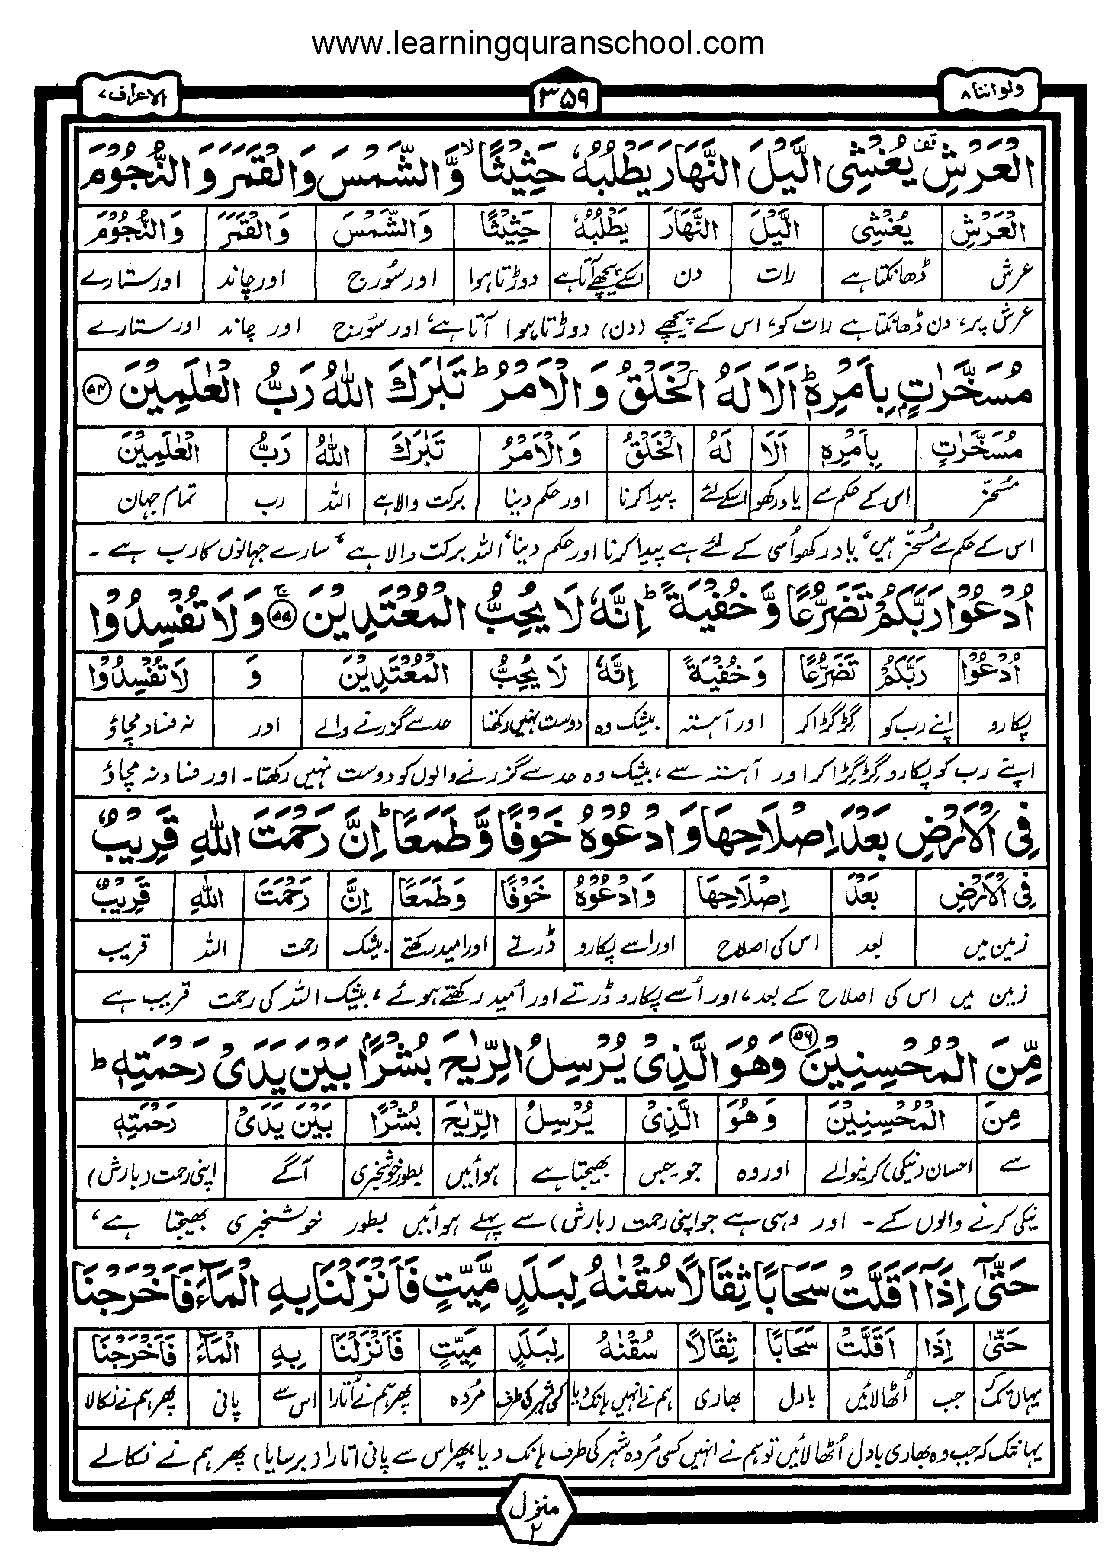 www.learningquranschool.com
ولواننا ۸ ۳۵۹ الاعراف ۷
الْعَرْشِ يُغْشِى الَّيْلَ النَّهَارَ يَطْلُبُهٗ حَثِيْثًا ۙ وَّالشَّمْسَ وَالْقَمَرَ وَالنُّجُوْمَ
الْعَرْشِ يُغْشِى الَّيْلَ النَّهَارَ يَطْلُبُهٗ حَثِيْثًا وَالشَّمْسَ وَالْقَمَرَ وَالنُّجُوْمَ
عرش ڈھانکتا ہے رات دن اسکے پیچھے آتا ہے دوڑتا ہوا اور سُورج اور چاند اور ستارے
عرش پر، دن ڈھانکتا ہے رات کو، اس کے پیچھے (دن) دوڑتا ہوا آتا ہے، اور سُورج اور چاند اور ستارے
مُسَخَّرٰتٍۭ بِاَمْرِهٖ ؕ اَلَا لَهُ الْخَلْقُ وَالْاَمْرُ ؕ تَبٰرَكَ اللّٰهُ رَبُّ الْعٰلَمِيْنَ ۵۴
مُسَخَّرٰتٍ بِاَمْرِهٖ اَلَا لَهُ الْخَلْقُ وَالْاَمْرُ تَبٰرَكَ اللّٰهُ رَبُّ الْعٰلَمِيْنَ
مسخر اس کے حکم سے یاد رکھو اسکے لئے پیدا کرنا اور حکم دینا برکت والا ہے اللہ رب تمام جہان
اس کے حکم سے مُسخّر ہیں، یاد رکھو اُسی کے لئے ہے پیدا کرنا اور حکم دینا، اللہ برکت والا ہے، سارے جہانوں کا رب ہے ۔
اُدْعُوْا رَبَّكُمْ تَضَرُّعًا وَّخُفْيَةً ؕ اِنَّهٗ لَا يُحِبُّ الْمُعْتَدِيْنَ ۵۵ وَلَا تُفْسِدُوْا
اُدْعُوْا رَبَّكُمْ تَضَرُّعًا وَخُفْيَةً اِنَّهٗ لَا يُحِبُّ الْمُعْتَدِيْنَ وَ لَا تُفْسِدُوْا
پکارو اپنے رب کو گڑگڑا کر اور آہستہ بیشک وہ دوست نہیں رکھتا حد سے گزرنے والے اور نہ فساد مچاؤ
اپنے رب کو پکارو گڑگڑا کر اور آہستہ سے، بیشک وہ حد سے گزرنے والوں کو دوست نہیں رکھتا۔ اور فساد نہ مچاؤ
فِى الْاَرْضِ بَعْدَ اِصْلَاحِهَا وَادْعُوْهُ خَوْفًا وَّطَمَعًا ؕ اِنَّ رَحْمَتَ اللّٰهِ قَرِيْبٌ
فِى الْاَرْضِ بَعْدَ اِصْلَاحِهَا وَادْعُوْهُ خَوْفًا وَطَمَعًا اِنَّ رَحْمَتَ اللّٰهِ قَرِيْبٌ
زمین میں بعد اس کی اصلاح اور اسے پکارو ڈرتے اور امید رکھتے بیشک رحمت اللہ قریب
زمین میں اس کی اصلاح کے بعد، اور اُسے پکارو ڈرتے اور اُمید رکھتے ہوئے، بیشک اللہ کی رحمت قریب ہے
مِّنَ الْمُحْسِنِيْنَ ۵۶ وَهُوَ الَّذِىْ يُرْسِلُ الرِّيٰحَ بُشْرًۢا بَيْنَ يَدَىْ رَحْمَتِهٖ ؕ
مِنَ الْمُحْسِنِيْنَ وَهُوَ الَّذِىْ يُرْسِلُ الرِّيٰحَ بُشْرًا بَيْنَ يَدَىْ رَحْمَتِهٖ
سے احسان (نیکی) کرنیوالے اور وہ جو۔جس بھیجتا ہے ہوائیں بطور خوشخبری آگے اپنی رحمت (بارش)
نیکی کرنے والوں کے ۔ اور وہی ہے جو اپنی رحمت (بارش) سے پہلے ہوائیں بطور خوشخبری بھیجتا ہے،
حَتّٰٓى اِذَآ اَقَلَّتْ سَحَابًا ثِقَالًا سُقْنٰهُ لِبَلَدٍ مَّيِّتٍ فَاَنْزَلْنَا بِهِ الْمَآءَ فَاَخْرَجْنَا
حَتّٰى اِذَا اَقَلَّتْ سَحَابًا ثِقَالًا سُقْنٰهُ لِبَلَدٍ مَيِّتٍ فَاَنْزَلْنَا بِهِ الْمَآءَ فَاَخْرَجْنَا
یہاں تک جب اُٹھا لائیں بادل بھاری ہم نے انہیں ہانک دیا کسی شہر کی طرف مُردہ پھر ہم نے اُتارا اس سے پانی پھر ہم نے نکالا
یہانتک کہ جب وہ بھاری بادل اُٹھا لائیں تو ہم نے انہیں کسی مُردہ شہر کی طرف ہانک دیا، پھر اس سے پانی اُتارا (برسایا) پھر ہم نے نکالے
منزل ۲